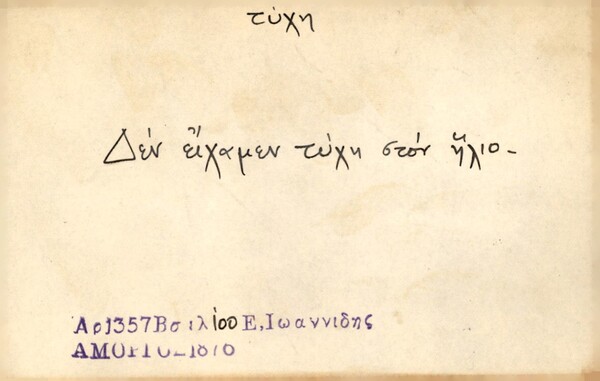 τύχη
Δέν εἴχαμεν τύχη στόν ἥλιο-
Αρ1357Βσιλίου Ε, Ιωαννιδης
ΑΜΟΡΓΟΣ 1876